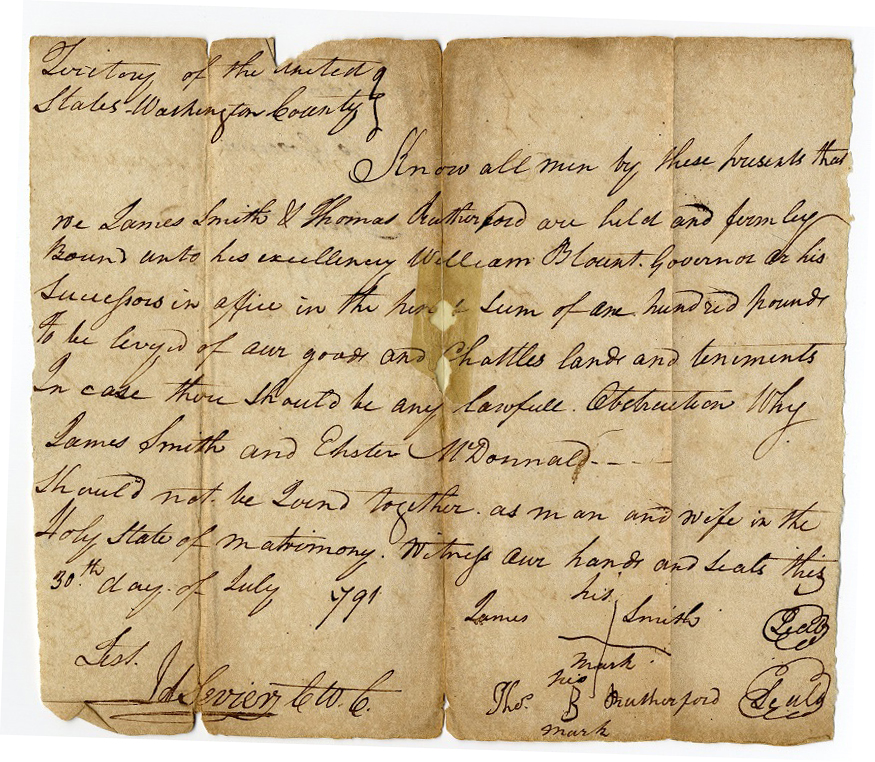 Teritory of the united
States Washington County
Know all men by these presents that
we James Smith & Thomas Rutherford are held and firmley
Bound unto his excellency William Blount. Governor or his
Successors in office in the sum of one hundred pounds
to be levy'd of our goods and Chattles lands and teniments
In case there should be any lawfull. Obstruction Why
James Smith and Ehster McDonnald
Should not be Joind together. as man and wife in the
Holy State of matrimony. Witness our hands and seals this
30th day of July 791
James his mark Smith Seal
Test.
Jas Sevier C W. C.
Thos. his B mark Rutherford Seal